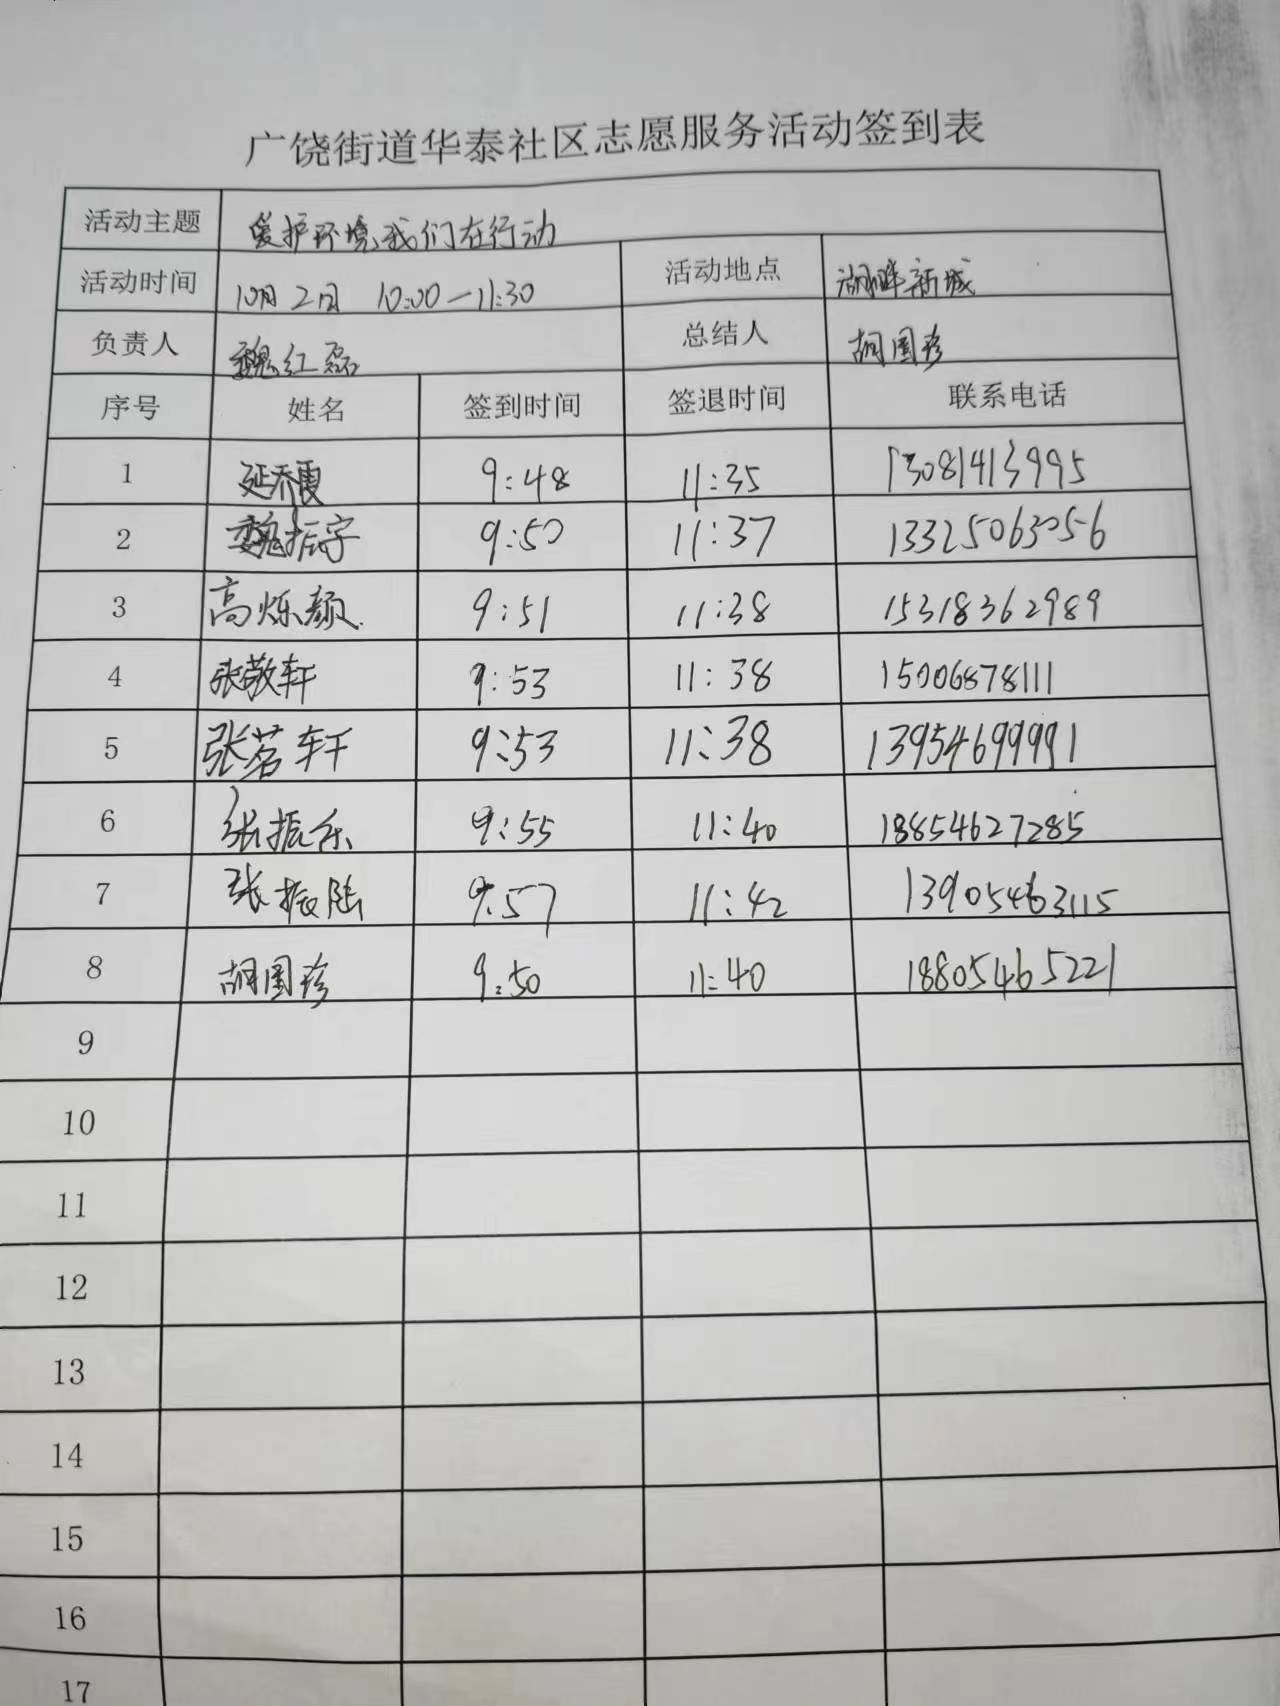 广饶街道华泰社区志愿服务活动签到表
活动主题 爱护环境、我们在行动
活动时间 10月2日 10:00—11:30 活动地点 湖畔新城
负责人 魏红磊 总结人 胡国珍
序号 姓名 签到时间 签退时间 联系电话
1 延乔霞 9:48 11:35 13081413995
2 魏振宇 9:50 11:37 13325063056
3 高烁颜 9:51 11:38 15318362989
4 张敬轩 9:53 11:38 15006878111
5 张茗轩 9:53 11:38 13954699991
6 张振乐 9:55 11:40 18854627285
7 张振陆 9:57 11:42 13905463115
8 胡国珍 9:50 11:40 18805465221
9
10
11
12
13
14
15
16
17